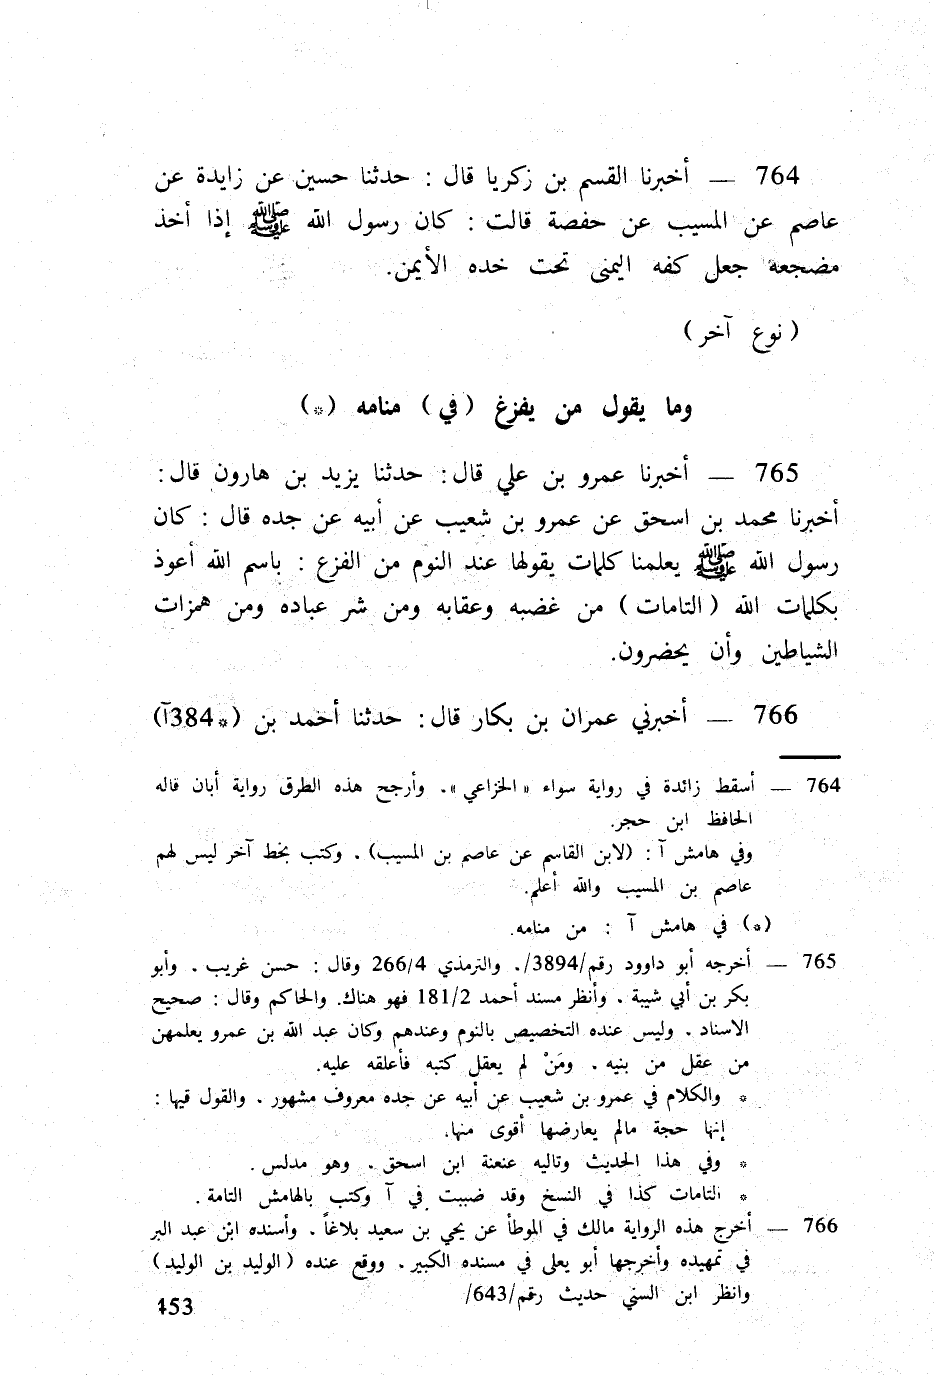 764 — أخبرنا القسم بن زكريا قال : حدثنا حسين عن زايدة عن
عاصم عن المسيب عن حفصة قالت : كان رسول الله ﷺ إذا أخذ
مضجعه جعل كفه اليمنى تحت خده الأيمن.
( نوع آخر )
وما يقول من يفزغ ( في ) منامه (*)
765 — أخبرنا عمرو بن علي قال : حدثنا يزيد بن هارون قال :
أخبرنا محمد بن اسحق عن عمرو بن شعيب عن أبيه عن جده قال : كان
رسول الله ﷺ يعلمنا كلمات يقولها عند النوم من الفزع : باسم الله أعوذ
بكلمات الله ( التامات ) من غضبه وعقابه ومن شر عباده ومن همزات
الشياطين وأن يحضرون.
766 — أخبرني عمران بن بكار قال : حدثنا أحمد بن (*384آ)
764 — أسقط زائدة في رواية سواء « الخزاعي ». وأرجح هذه الطرق رواية أبان قاله
الحافظ ابن حجر.
وفي هامش آ : (لابن القاسم عن عاصم بن المسيب) . وكتب بخط آخر ليس لهم
عاصم بن المسيب والله أعلم.
(*) في هامش آ : من منامه.
765 — أخرجه أبو داوود رقم/3894/. والترمذي 266/4 وقال : حسن غريب . وأبو
بكر بن أبي شيبة . وأنظر مسند أحمد 181/2 فهو هناك. والحاكم وقال : صحيح
الاسناد . وليس عنده التخصيص بالنوم وعندهم وكان عبد الله بن عمرو يعلمهن
من عقل من بنيه . ومَنْ لم يعقل كتبه فأعلقه عليه.
* والكلام في عمرو بن شعيب عن أبيه عن جده معروف مشهور . والقول فيها :
إنها حجة مالم يعارضها أقوى منها.
* وفي هذا الحديث وتاليه عنعنة ابن اسحق . وهو مدلس .
* التامات كذا في النسخ وقد ضببت في آ وكتب بالهامش التامة .
766 — أخرج هذه الرواية مالك في الموطأ عن يحي بن سعيد بلاغاً . وأسنده ابن عبد البر
في تمهيده وأخرجها أبو يعلى في مسنده الكبير . ووقع عنده ( الوليد بن الوليد )
وانظر ابن السني حديث رقم/643/
453